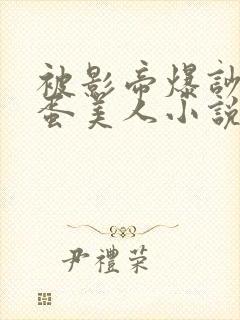 被影帝爆訬
蛋美人小說
尹禮榮